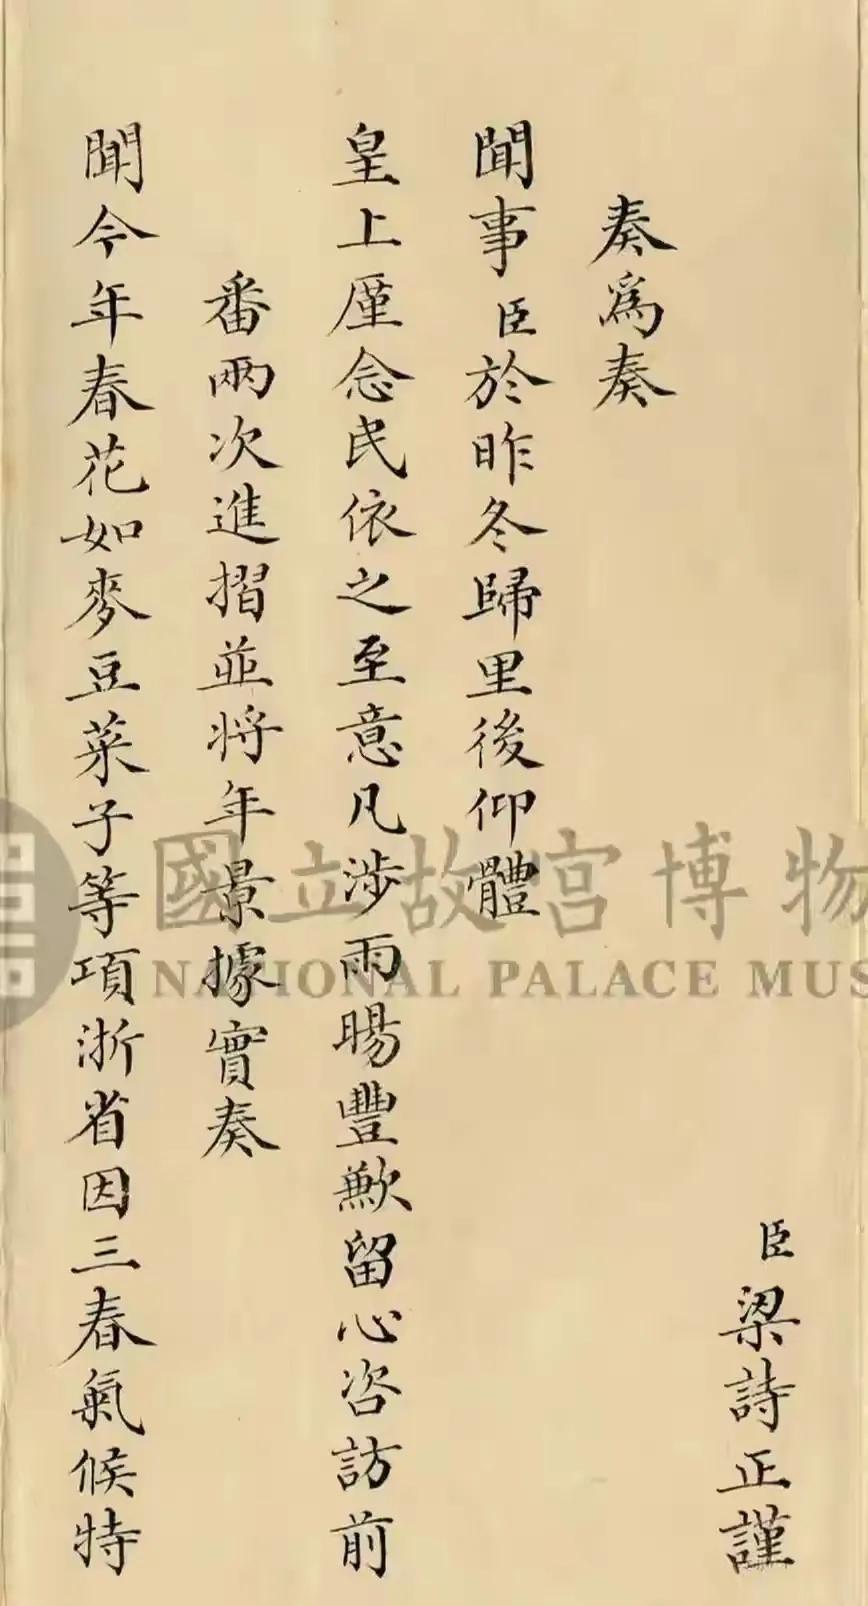 臣梁詩正謹
奏為奏
聞事臣於昨冬歸里後仰體
皇上厪念民依之至意凡涉雨暘豐歉留心咨訪前
番兩次進摺並將年景據實奏
聞今年春花如麥豆菜子等項浙省因三春氣候特
國立故宮博物
NATIONAL PALACE MUS